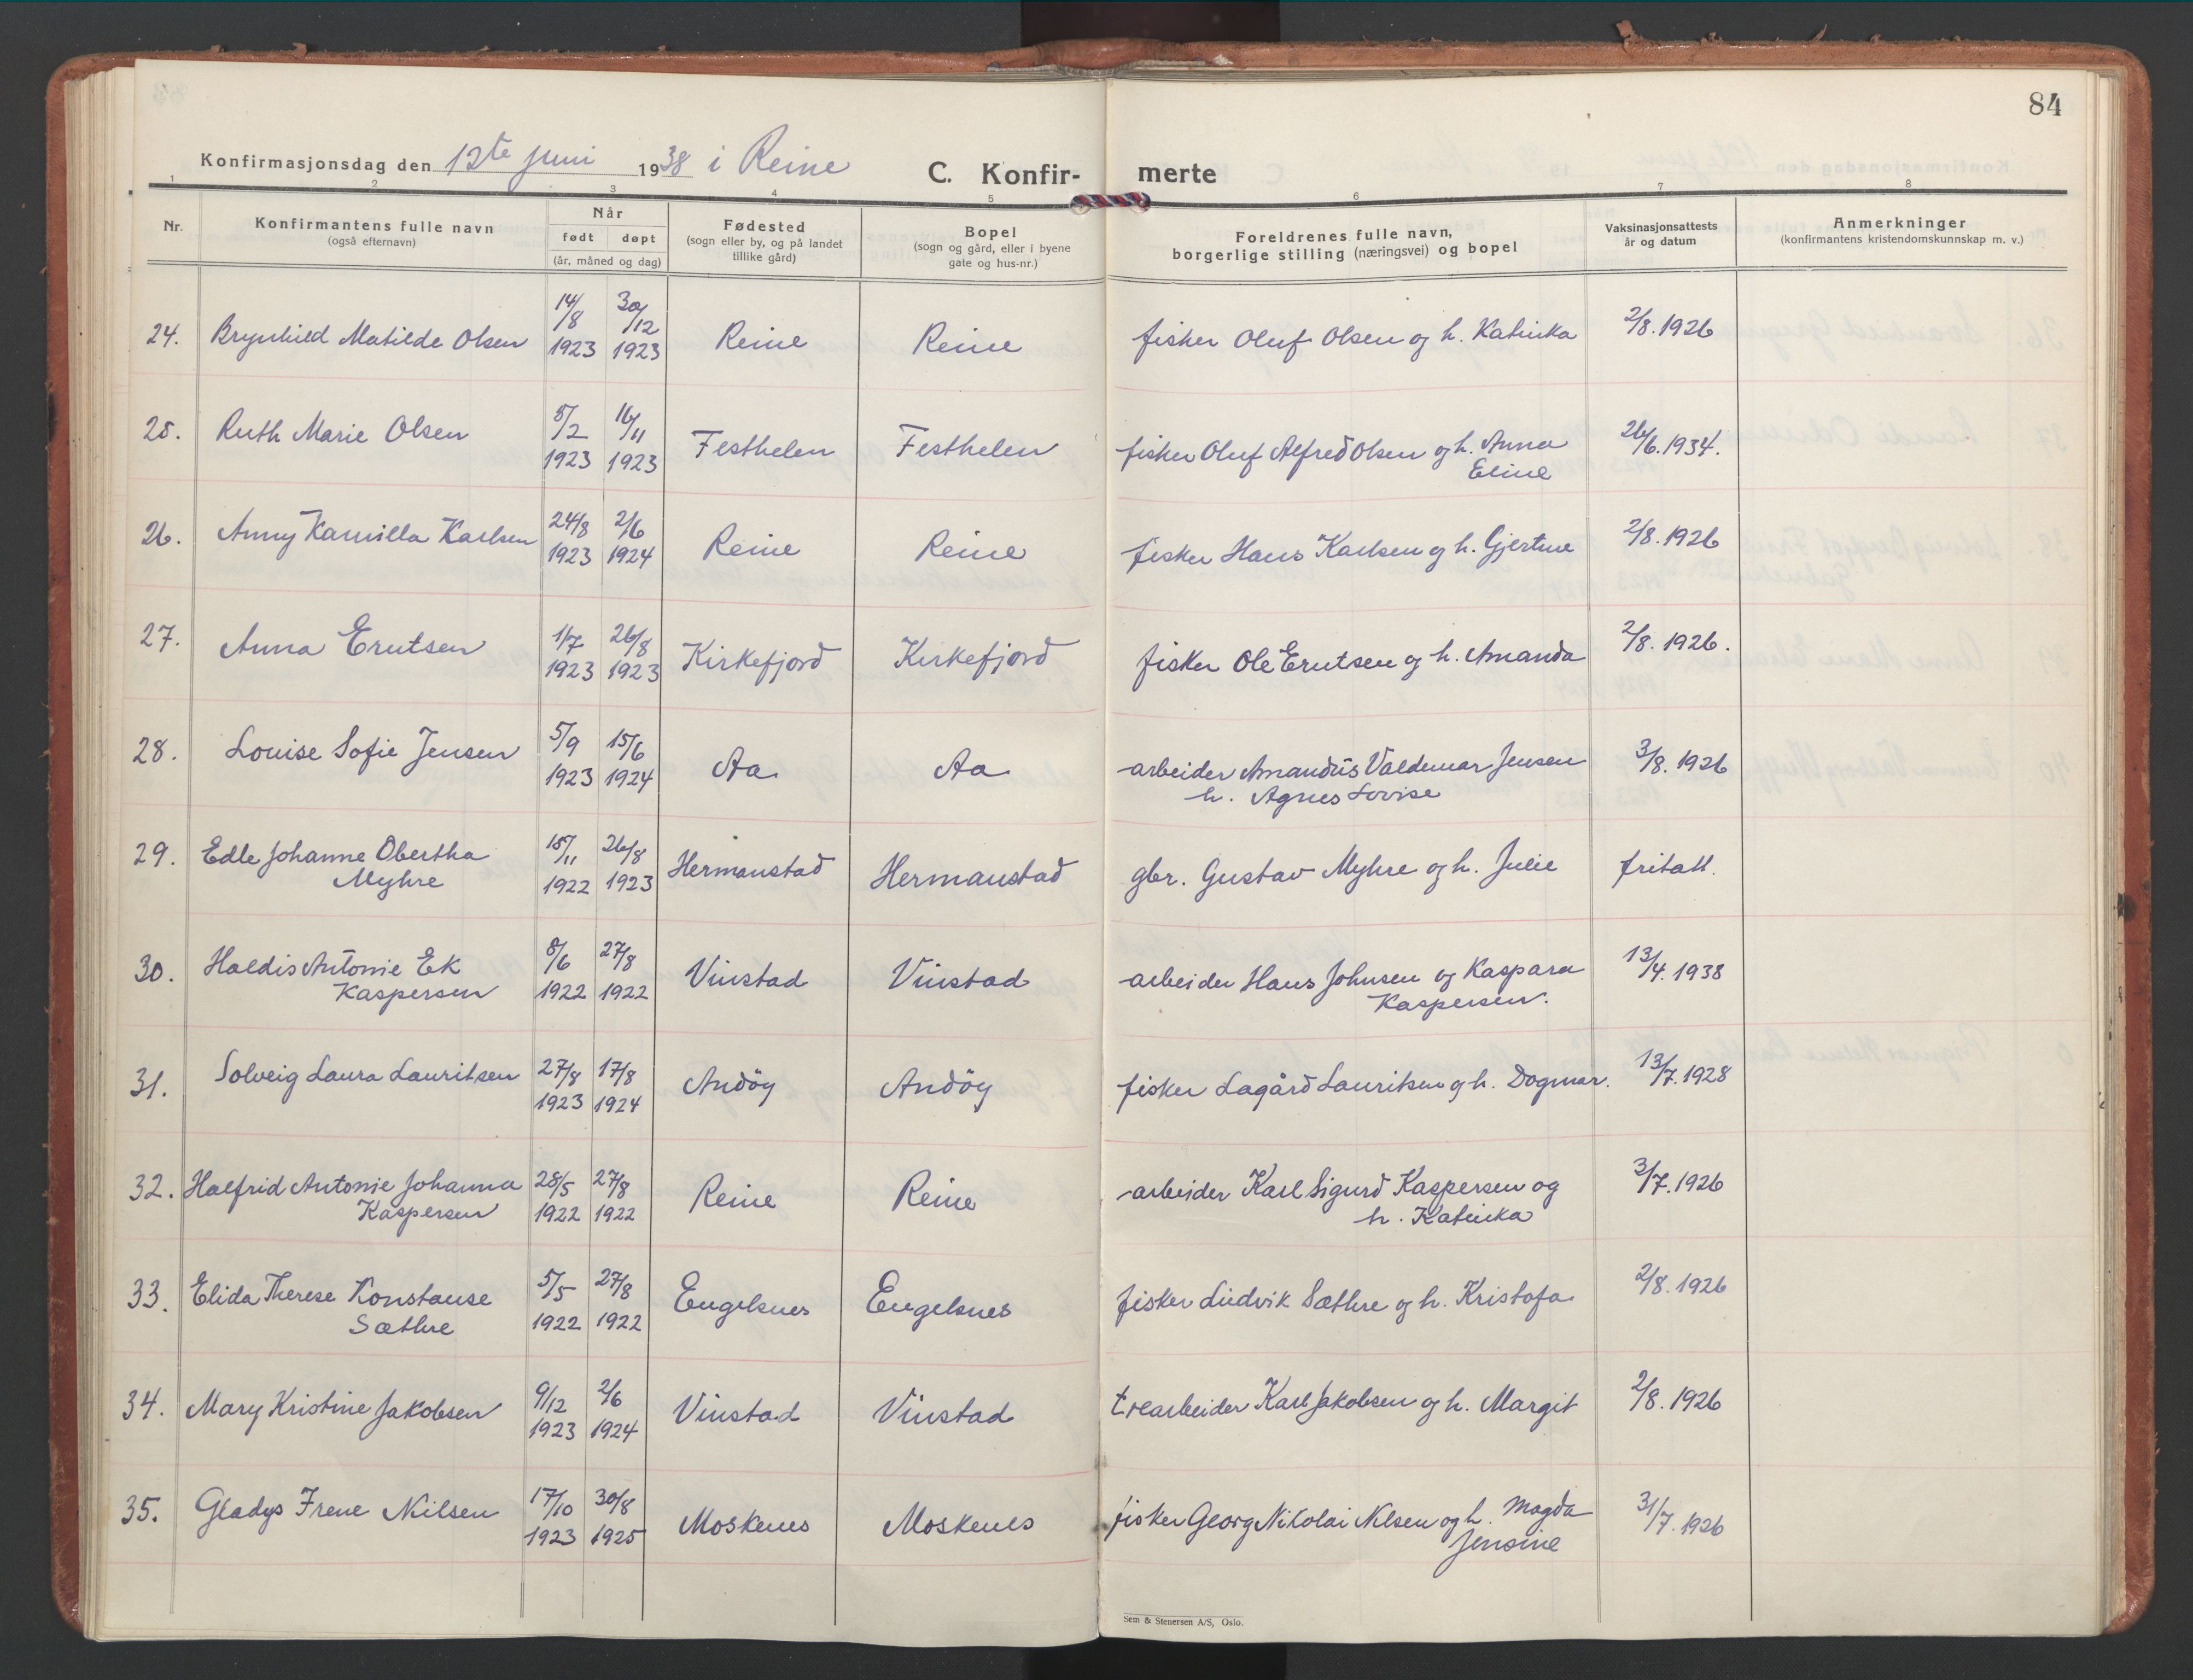 84
Konfirmasjonsdag den 12te juni 1938 i Reine
C. Konfir- merte
1 2 3 4 5 6 7 8
Nr.
Konfirmantens fulle navn
(også efternavn)
Når
født døpt
(år, måned og dag)
Fødested
(sogn eller by, og på landet
tillike gård)
Bopel
(sogn og gård, eller i byene
gate og hus-nr.)
Foreldrenes fulle navn,
borgerlige stilling (næringsvei) og bopel
Vaksinasjonsattests
år og datum
Anmerkninger
(konfirmantens kristendomskunnskap m. v.)
24. Brynhild Matilde Olsen 14/8 1923 30/12 1923 Reine Reine fisker Oluf Olsen og h. Katinka 2/8. 1926
25. Ruth Marie Olsen 5/2 1923 16/11 1923 Festhelen Festhelen fisker Oluf Alfred Olsen og h. Anna
Eline 26/6. 1934.
26. Anny Kamilla Karlsen 24/8 1923 2/6 1924 Reine Reine fisker Hans Karlsen og h. Gjertine 2/8. 1926
27. Anna Erntsen 1/7 1923 26/8 1923 Kirkefjord Kirkefjord fisker Ole Erntsen og h. Amanda 2/8. 1926.
28. Louise Sofie Jensen 5/9 1923 15/6 1924 Aa Aa arbeider Amandus Valdemar Jensen
h. Agnes Lovise 3/8. 1926
29. Edle Johanne Obertha
Myhre 15/11 1922 26/8 1923 Hermanstad Hermanstad gbr. Gustav Myhre og h. Julie fritatt.
30. Haldis Antonie Ek
Kaspersen 8/6 1922 27/8 1922 Vinstad Vinstad arbeider Hans Johnsen og Kaspara
Kaspersen. 13/4. 1938
31. Solveig Laura Lauritsen 27/8 1923 17/8 1924 Andöy Andöy fisker Lagård Lauritsen og h. Dagmar. 13/7. 1928
32. Halfrid Antonie Johanna
Kaspersen 28/5 1922 27/8 1922 Reine Reine arbeider Karl Sigurd Kaspersen og
h. Katinka 3/7. 1926
33. Elida Therese Konstanse
Sæthre 5/5 1922 27/8 1922 Engelsnes Engelsnes fisker Ludvik Sæthre og h. Kristofa 2/8. 1926
34. Mary Kristine Jakobsen 9/12 1923 2/6 1924 Vinstad Vinstad trearbeider Karl Jakobsen og h. Margit 2/8. 1926
35. Gladys Irene Nilsen 17/10 1923 30/8 1925 Moskenes Moskenes fisker Georg Nikolai Nilsen og h. Magda
Jensine 31/7. 1926
Sem & Stenersen A/S, Oslo.